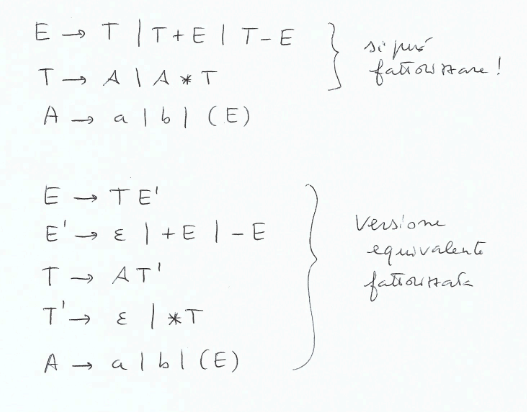 E → T | T + E | T - E
T → A | A * T
si può fattorizzare!
A → a | b | (E)
E → T E'
E' → ε | + E | - E
T → A T'
T' → ε | * T
A → a | b | (E)
Versione
equivalente
fattorizzata